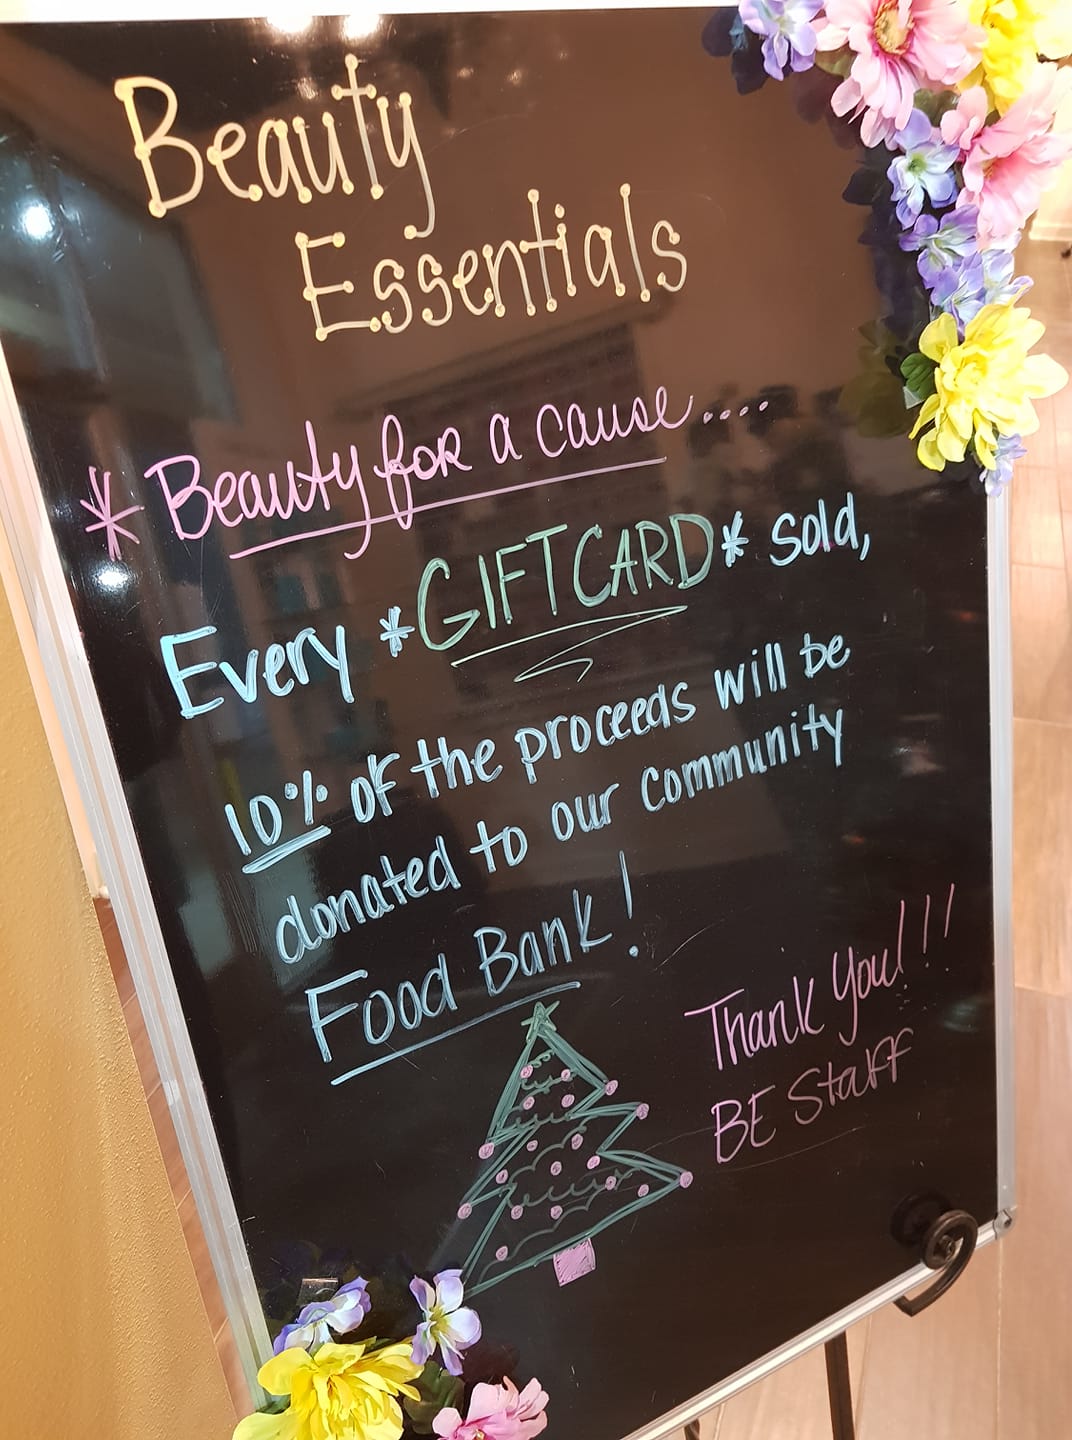 Beauty
Essentials
* Beauty for a cause....
Every *GIFTCARD* sold,
10% of the proceeds will be
donated to our community
Food Bank!
Thank You!!!
BE Staff